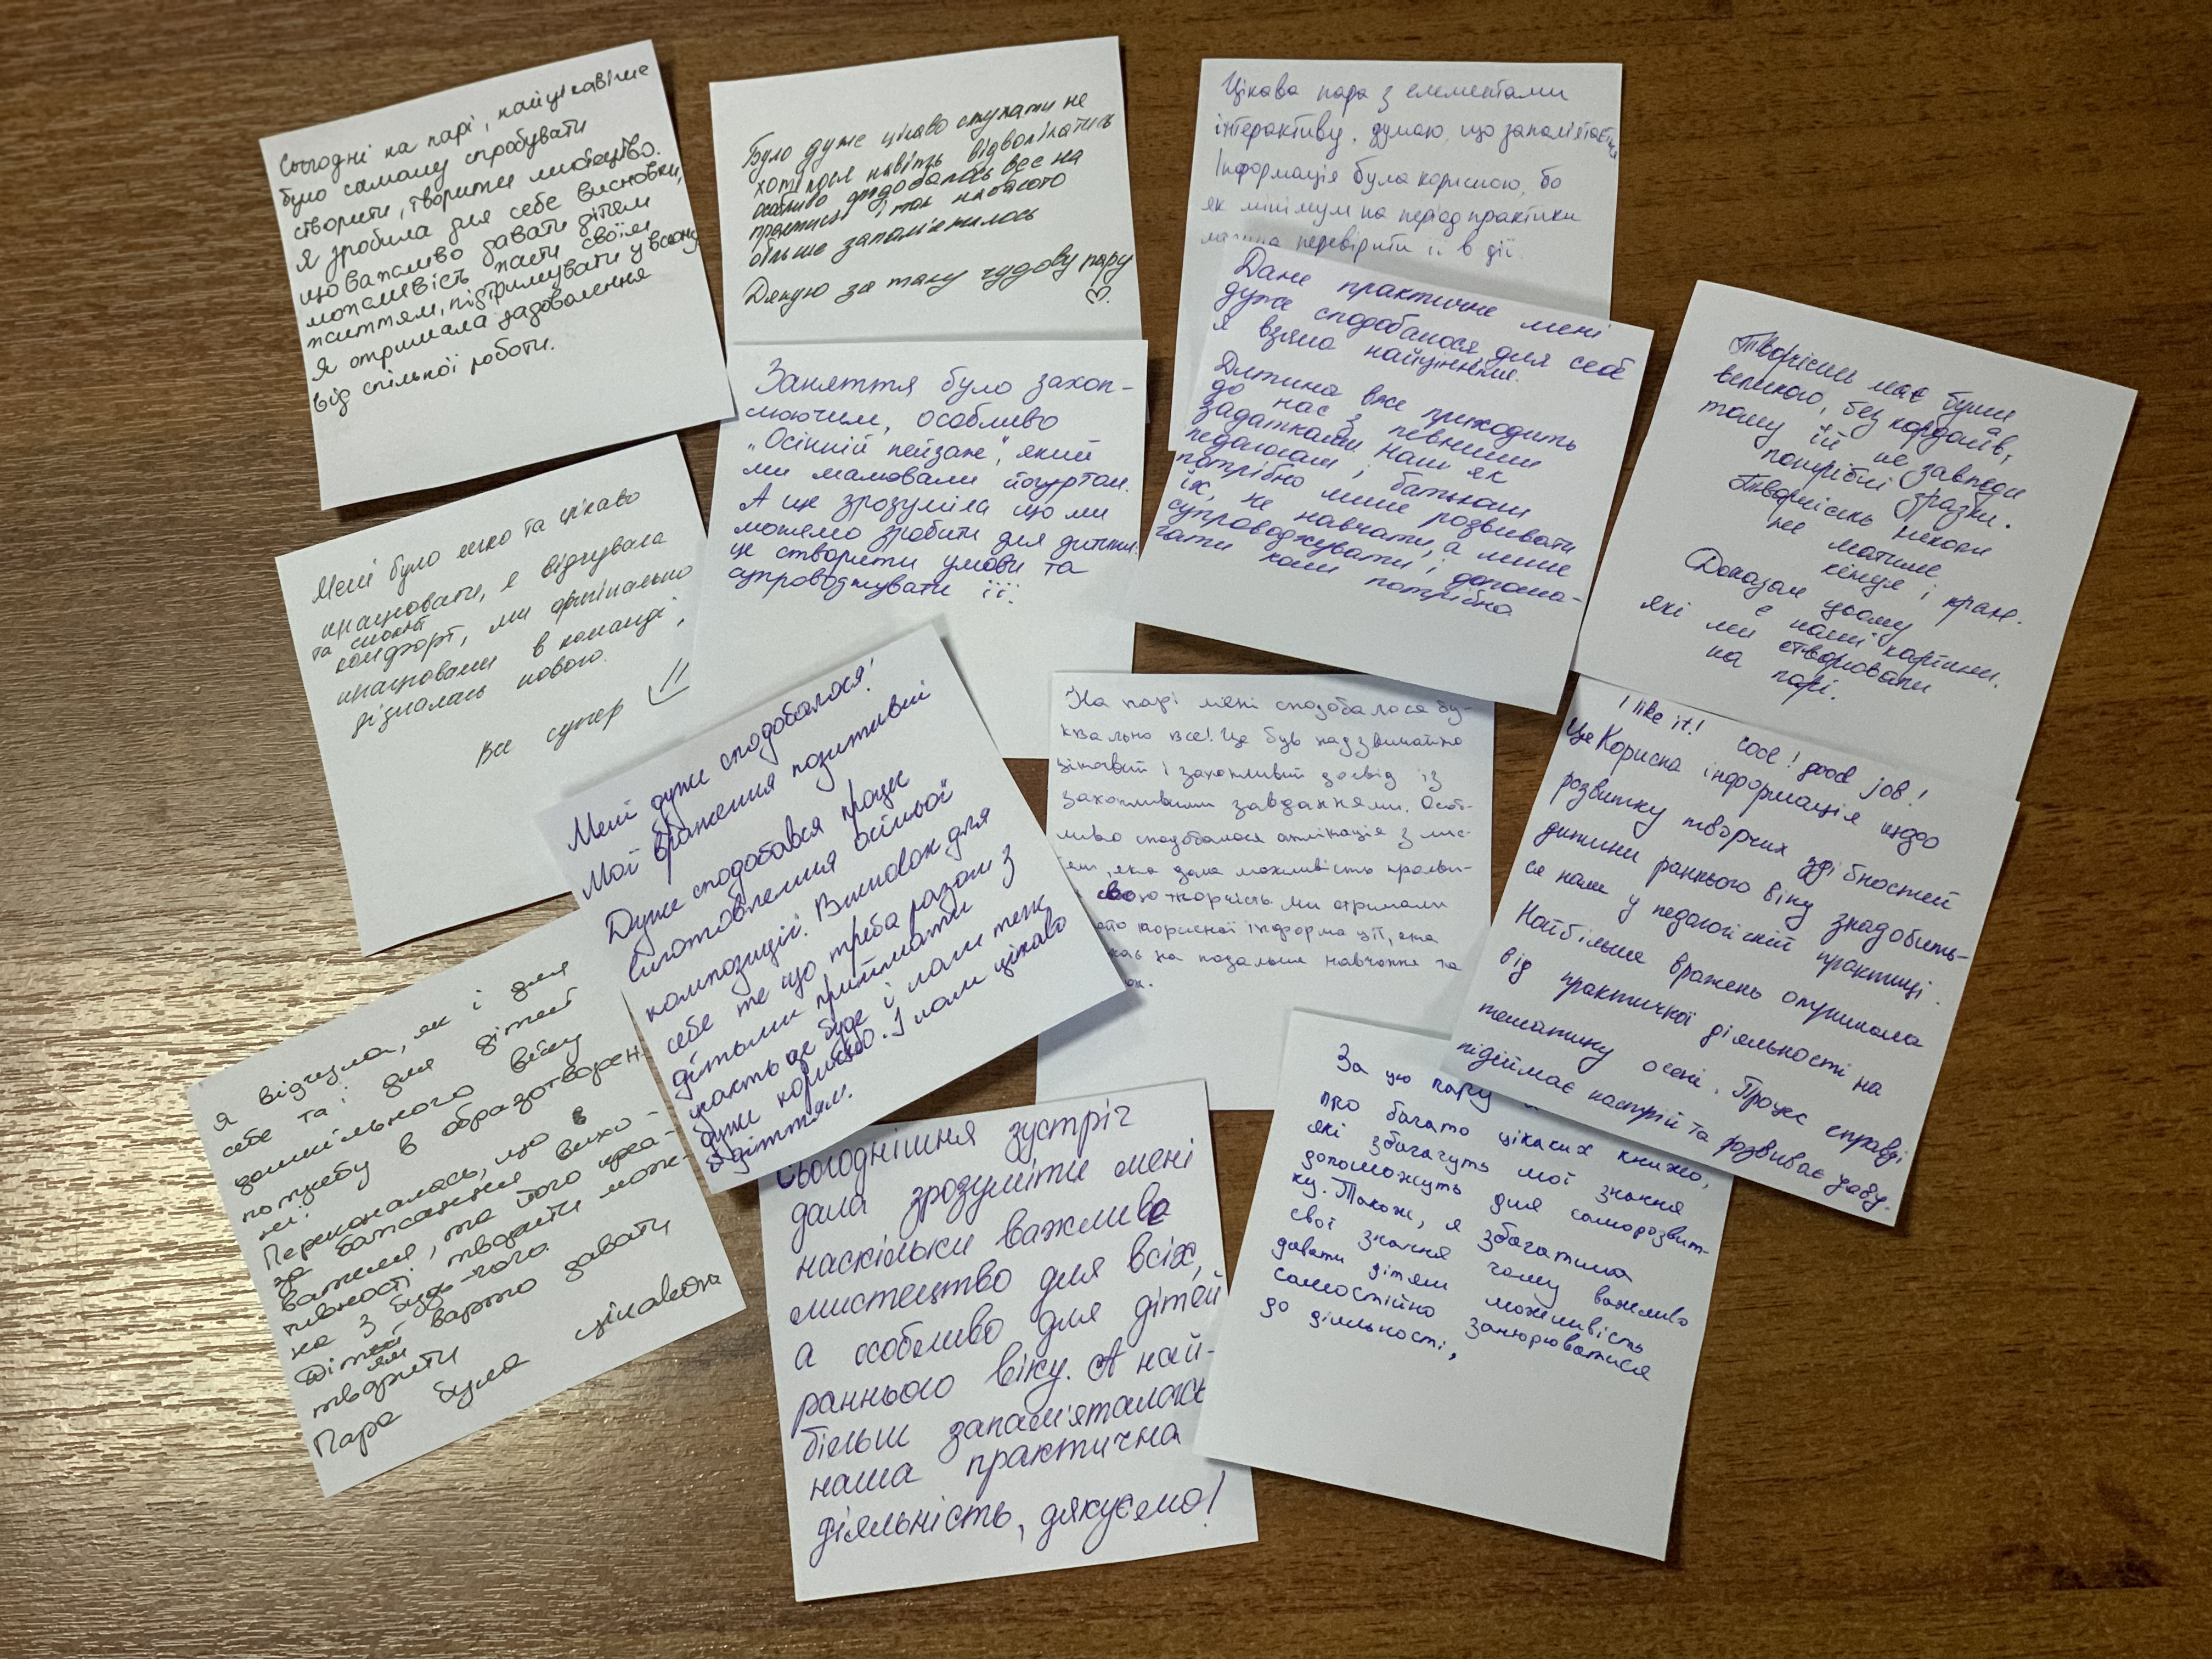 Сьогодні на парі, найцікавіше
було самому спробувати
створити, творити мистецтво.
Я зробила для себе висновки,
що важливо давати дітям
можливість жити своїм
життям, підтримувати у всьому
Я отримала задоволення
від спільної роботи.
Було дуже цікаво слухати не
хотілося навіть відволікатись
особливо сподобалось все на
практиці і так набагато
більше запам'яталось
Дякую за таку чудову пару
♡.
Цікава пара з елементами
інтерактиву, думаю, що запам'ятається
Інформація була корисною, бо
як мінімум на період практики
можна перевірити її в дії.
Дане практичне мені
дуже сподобалося, для себе
я взяла найцінніше.
Дитина вже приходить
до нас з певними
задатками нам як
педагогам і батькам
потрібно лише розвивати
їх, не навчати, а лише
супроводжувати і допома-
гати коли потрібно
Творчість має бути
великою, без кордонів, а
тому їй не завжди
потрібні зразки.
Творчість ніколи
не матиме
кінця і краю.
Доказом цьому
є наші картини.
які ми створювали
на парі.
Мені було легко та цікаво
працювати, я відчувала
та спокій
комфорт, ми
працювали в команді,
дізналась нового.
Все супер
Заняття було захоп-
люючим, особливо
„Осінній пейзаж", який
ми малювали йогуртом.
А ще зрозуміла що ми
можемо зробити для дитини:
це створити умови та
супроводжувати її.
Мені дуже сподобалося!
Мої враження позитивні
Дуже сподобався процес
виготовлення осінньої
композиції. Висновок для
себе те що треба разом з
дітьми приймати
участь це буде і нам теж
дуже корисно. І нам цікаво
з діттям.
На парі мені сподобалося бу-
квально все! Це був надзвичайно
цікавий і захопливий досвід із
захопливими завданнями. Особ-
ливо сподобалося аплікація з лис-
тям, яка дала можливість прояви-
свою творчість ми отримали
корисної інформації, яка
на подальше навчання та
I like it! cool! good job!
Це Корисна інформація щодо
розвитку творчих здібностей
дитини раннього віку знадобить-
ся нам у педагогічній практиці.
Найбільше вражень отримала
від практичної діяльності на
тематику осені. Процес справді
підіймає настрій та розвиває уяву.
Я відчула, як і для
себе та і для дітей
дошкільного віку
потребу в образотворен-
ні.
Переконалась, що в
за бажання вихо-
вателя, та його креа-
тивності творити мож-
на з будь-чого.
Дітям варто давати
творити
Пара була цікавою
Сьогоднішня зустріч
дала зрозуміти мені
наскільки важливе
мистецтво для всіх,
а особливо для дітей
раннього віку. А най-
більш запам'яталась
наша практична
діяльність, дякуємо!
За цю пару
про багато цікавих книжо,
які збагачуть мої знання
допоможуть для саморозвит-
ку. Також, я збагатила
свої знання чому важливо
давати дітям можливість
самостійно занурюватися
до діяльності,